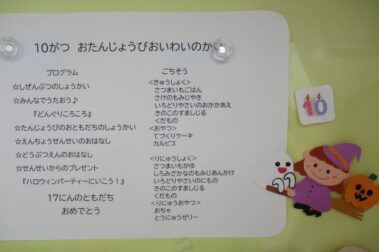 10がつ おたんじょうびおいわいのかい
プログラム
☆しぜんぶつのしょうかい
☆みんなでうたおう♪
『どんぐりころころ』
☆たんじょうびのおともだちのしょうかい
☆えんちょうせんせいのおはなし
☆どうぶつえんのおはなし
☆せんせいからのプレゼント
『ハロウィンパーティーにいこう！』
17にんのともだち
おめでとう
ごちそう
<きゅうしょく>
さつまいもごはん
さけのもみじやき
いろどりやさいのおかかあえ
きのこのすましじる
くだもの
<おやつ>
てづくりケーキ
カルピス
<りにゅうしょく>
さつまいもがゆ
しろみざかなのもみじあんかけ
いろどりやさいのにもの
きのこのすましじる
くだもの
<りにゅうおやつ>
おちゃ
とうにゅうゼリー
10